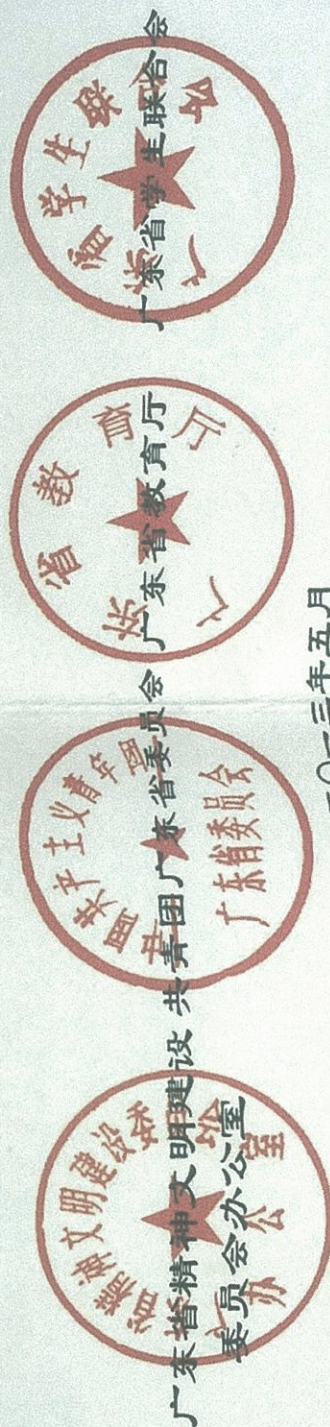 广东省精神文明建设 共青团广东省委员会 广东省教育厅 广东省学生联合会
委员会办公室
二〇一三年五月
省精神文明建设委
办公室
中国共产主义青年团
广东省委员会
广东省教育厅
广东省学生联合会